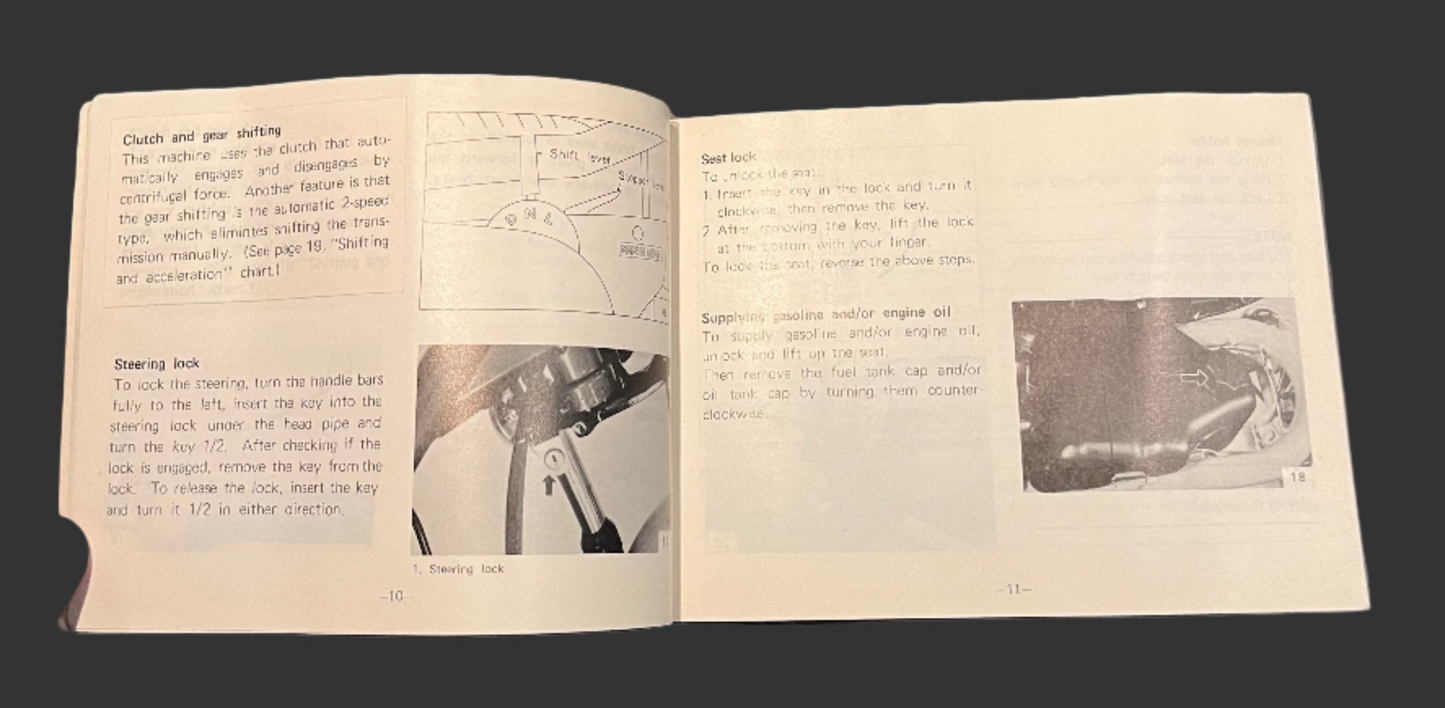 Clutch and gear shifting
This machine uses the clutch that auto-
matically engages and disengages by
centrifugal force. Another feature is that
the gear shifting is the automatic 2-speed
type, which elimintes shifting the trans-
mission manually. (See page 19, "Shifting
and acceleration" chart.)
Shift lever
Stopper
N
Steering lock
To lock the steering, turn the handle bars
fully to the left, insert the key into the
steering lock under the head pipe and
turn the key 1/2. After checking if the
lock is engaged, remove the key from the
lock. To release the lock, insert the key
and turn it 1/2 in either direction.
1
1. Steering lock
–10–
Seat lock
To unlock the seat:
1. Insert the key in the lock and turn it
clockwise, then remove the key.
2. After removing the key, lift the lock
at the bottom with your finger.
To lock the seat, reverse the above steps.
Supplying gasoline and/or engine oil
To supply gasoline and/or engine oil,
unlock and lift up the seat.
Then remove the fuel tank cap and/or
oil tank cap by turning them counter-
clockwise.
18
–11–